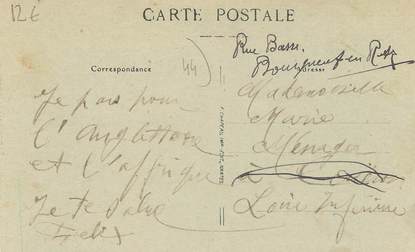 12€
CARTE POSTALE
Rue Basse.
Bourgneuf-en Retz
Correspondance
Adresse
44
Je pars pour
l'Angleterre
et l'affrique
Je te salue
Felix
Mademoiselle
Marie
à
Loire Inférieure